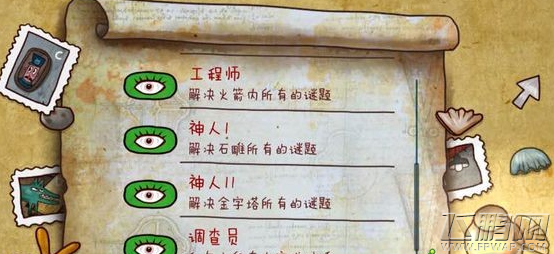 工程师
解决火箭内所有的谜题
神人I
解决石雕所有的谜题
神人II
解决金字塔所有的谜题
调查员
飞鹏网
WWW.FPWAP.COM